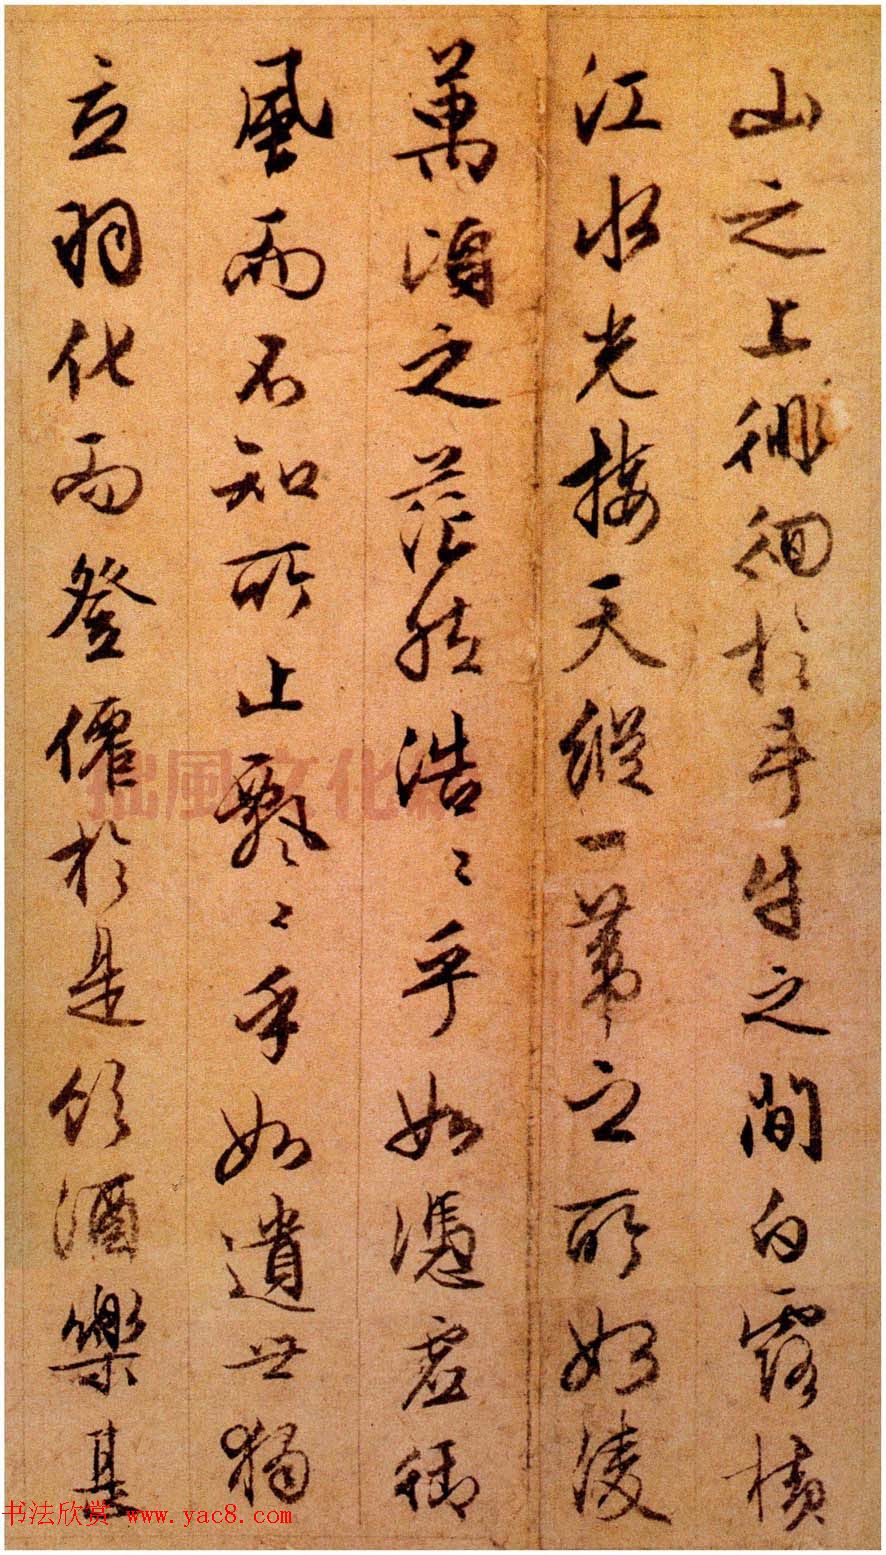 山之上徘徊於斗牛之間白露橫
江水光接天縱一葦之所如淩
萬頃之茫然浩〻乎如憑虛御
風而不知所止飄〻乎如遺世獨
立羽化而登僊於是飲酒樂甚
拙風文化網
书法欣赏 www.yac8.com